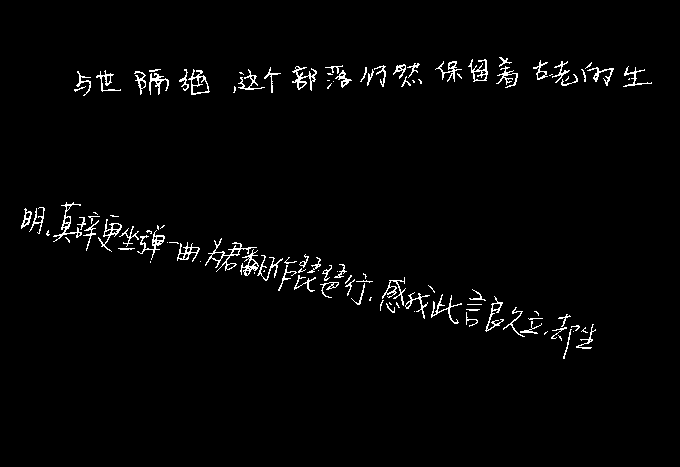 与世隔绝,这个部落仍然保留着古老的生
明。莫辞更坐弹一曲,为君翻作琵琶行。感我此言良久立,却坐